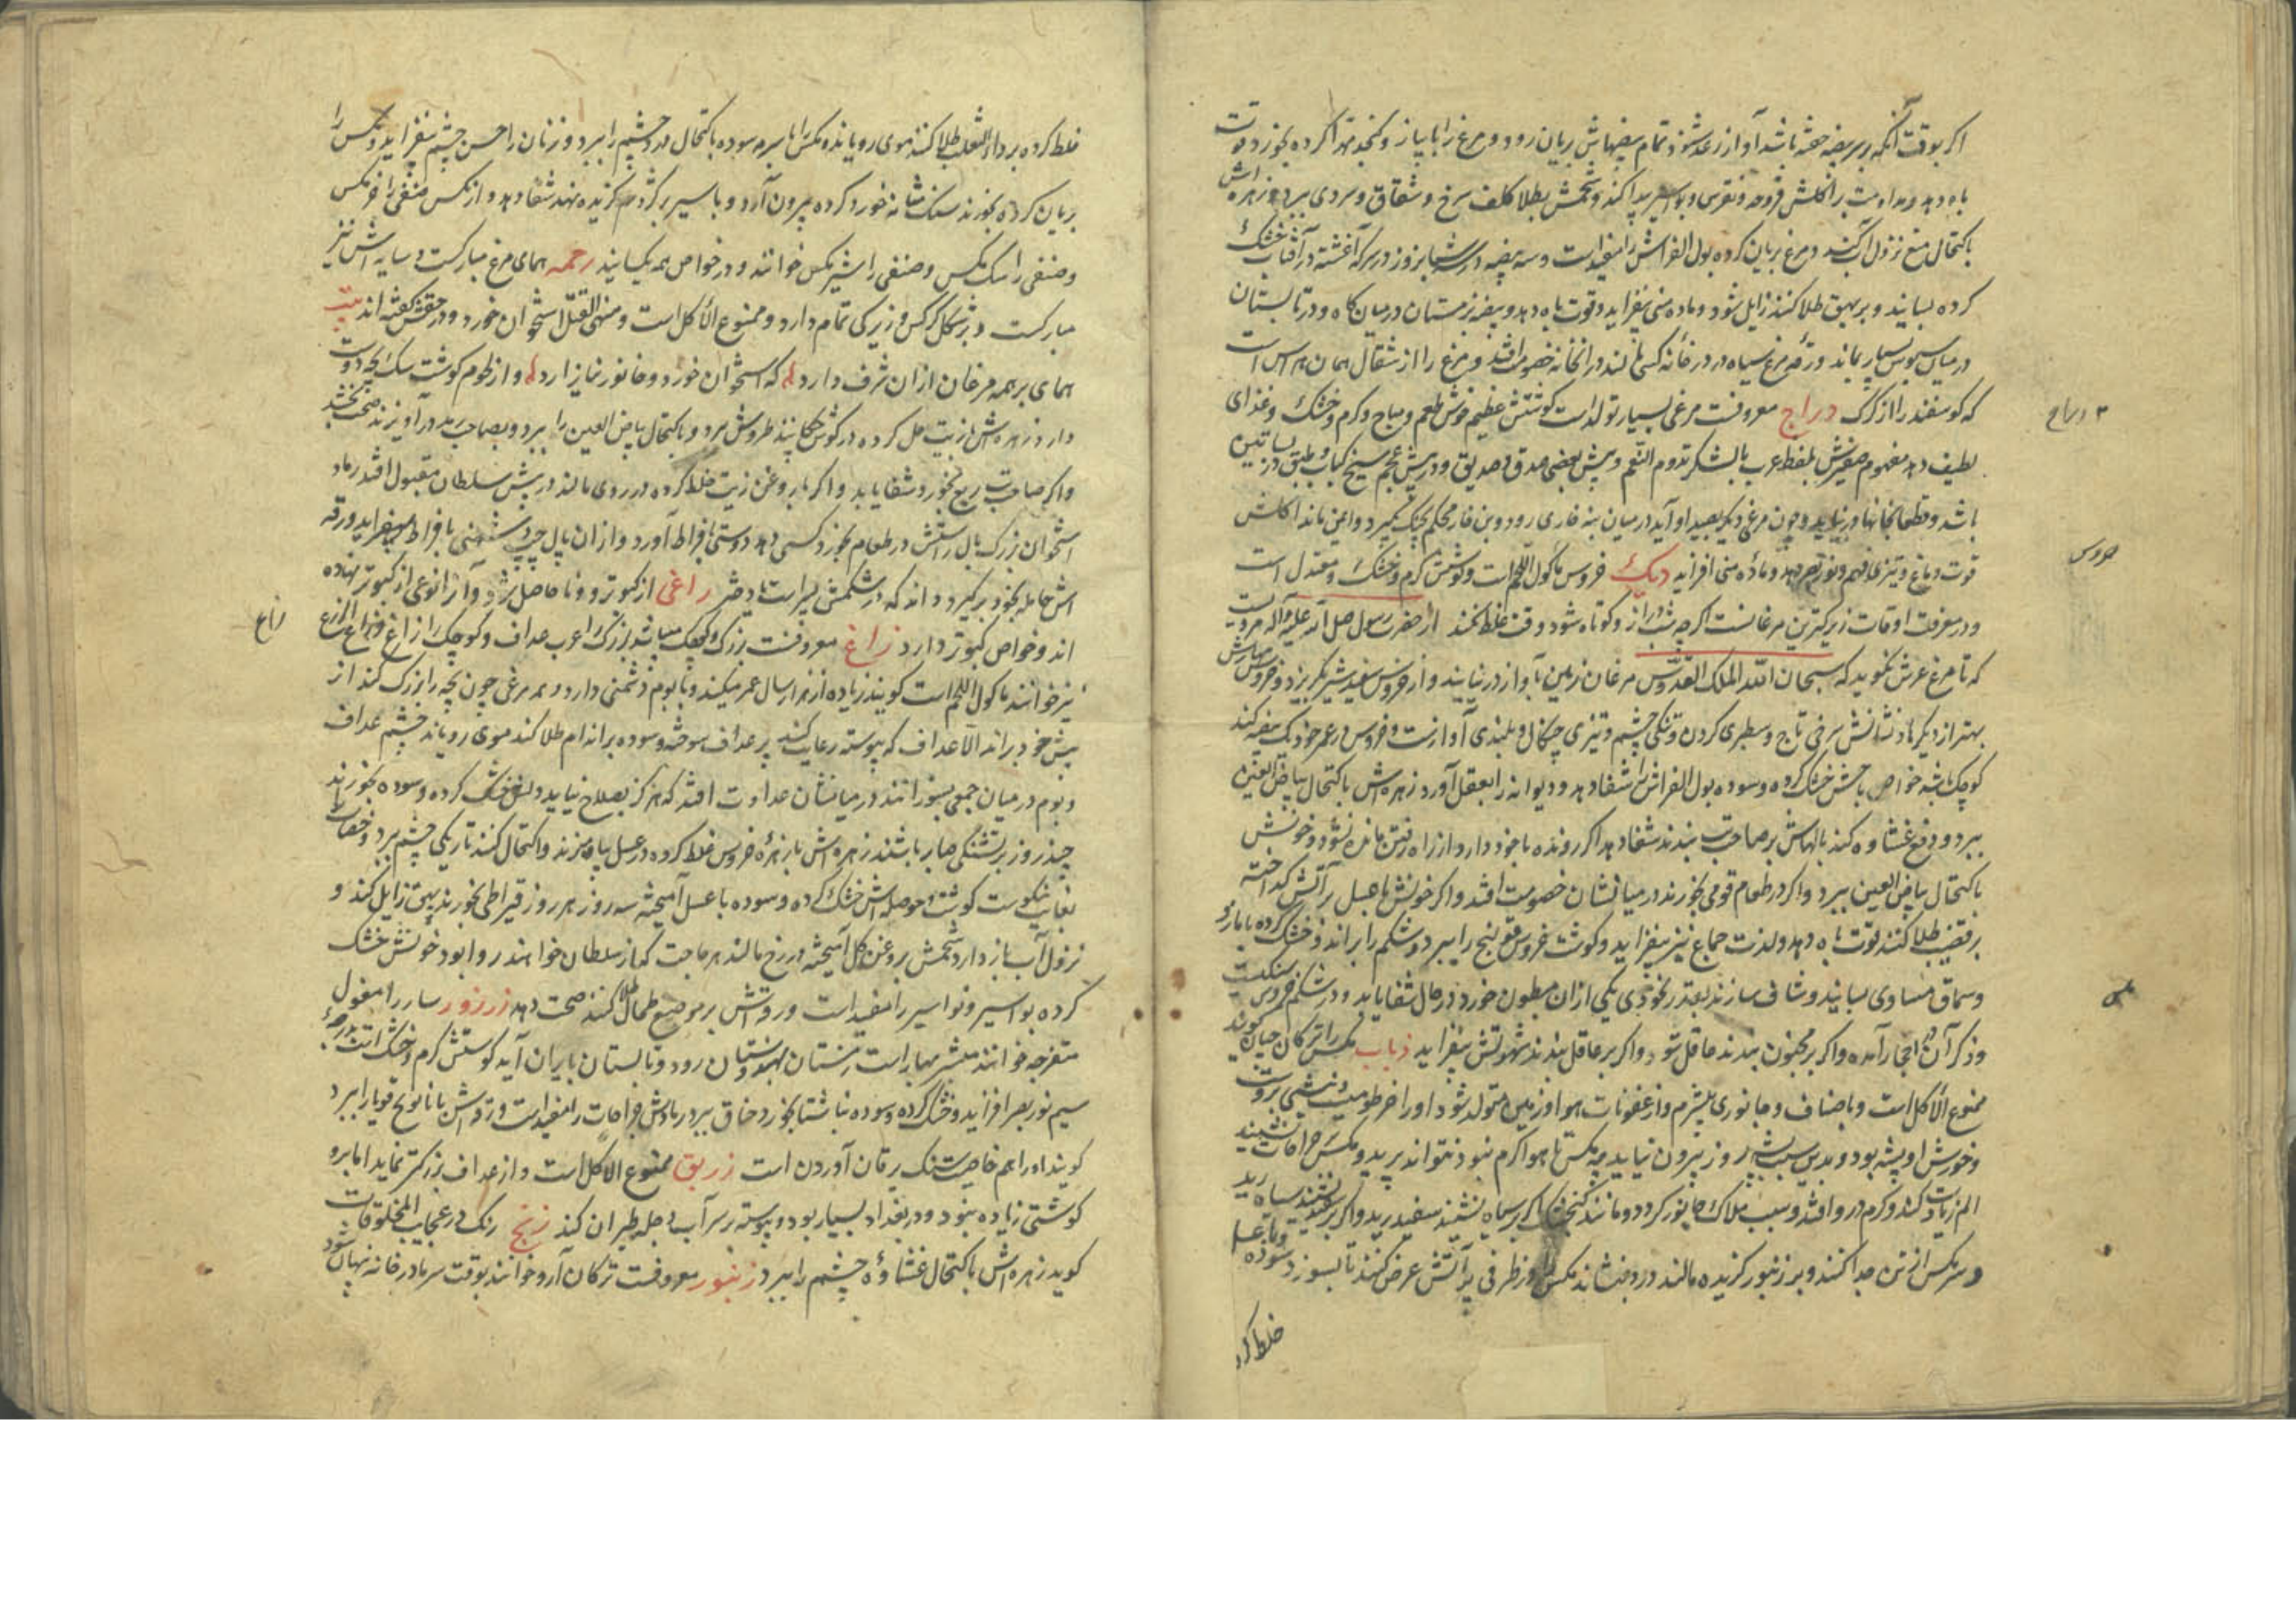 اکر بوقت آنکه بر بیضه خفته باشد آواز رعد شنود تمام بیضهاش بزیان رود و مرغ را با پیاز و کنجد مهرا کرده بخورند قوت
باه دهد و مداومت بر اکلش قروحه و نقرس و بواسیر پیدا کند و شحمش بطلا کلف سرخ و شقاق و سردی ببرد و زهره اش
باکتحال منع نزول آب کند و مرغ بریان کرده بول الفراش را مفیدست و سه بیضه در سه شبانروز در سرکه آغشته در آفتاب خشک
کرده بسایند و بر بهق طلا کنند زایل شود و ماده منی بیفزاید و قوت باه دهد و بیضه بزمستان در میان کاه و در تابستان
در میان سبوس بسیار بماند و زهره مرغ سیاه در در خانه کسی افکنند در آن خانه خصومت افتد و مرغ را از شغال همان هراس است
که کوسفند را از کرک دراج معروفست مرغی بسیار تولد است کوشتش عظیم خوش طعم و مباح و کرم و خشک و غذای
لطیف دهد مفهوم صفیرش بلفظ عرب بالشکر تدوم النعم و پیش بعضی صدق صدیق و در پیش عجم سیخ کباب و طبق در بساتین
باشد و قطعا بخانها در نیاید و چون مرغی دیکر بصید او آید در میان بته خاری رود و بن خار محکم بچنک کیرد و ایمن ماند اکلش
قوت دماغ و تیزی فهم و نور بصر دهد و ماده منی افزاید دیک خروس ماکول اللحم است و کوشتش کرم و خشک و معتدل است
و در معرفت اوقات زیرکترین مرغانست اکرچه شب دراز و کوتاه شود وقت غلط نکند از حضرت رسول صلی الله علیه و آله مرویست
که تا مرغ عرش نکوید که سبحان الله الملک القدوس مرغان زمین بآواز در نیایند و از خروس سفید شیر بکریزد و خروس
بهتر از دیکرها و نشانش سرخی تاج و سطبری کردن و تنکی چشم و تیزی چنکال و بلندی آوازست و خروس در عمر خود یک بیضه کند
کوچک باشد خواص تاجش خشک کرده و سوده بول الفراش را شفا دهد و دیوانه را بعقل آورد زهره اش باکتحال بیاض العین
ببرد و دفع غشاوه کند بالهاش بر صاحب تب بندند شفا دهد اکر رونده با خود دارد از راه رفتن مانده نشود و خونش
باکتحال بیاض العین ببرد و اکر در طعام قومی بخورند در میانشان خصومت افتد و اکر خونش با عسل بر آتش کداخته
بر قضیب طلا کنند قوت باه دهد و لذت جماع نیز بیفزاید و کوشت خروس قولنج را ببرد و شکم را براند و خشک کرده با مازو
و سماق مساوی بسایند و شاف سازند بقدر نخودی یکی از آن مبطون خورد در حال شفا یابد و در شکم خروس سنکیست
و ذکر آن در احجار آمده و اکر بر مجنون بندند عاقل شود و اکر بر عاقل بندند شهوتش بیفزاید ذباب مکس را ترکان چبین کویند
ممنوع الاکل است و باصناف و جانوری بیشرم و از عفونات هوا و زمین متولد شود او را خرطومیست
و خورش او پشه بود و بدین سبب پشه بروز بیرون نیاید چه مکس تا هوا کرم نبود نتواند پرید و مکس بر جراحات نشیند
الم زیادت کند و کرم درو افتد و سبب هلاک جانور کردد و مانند کنجشک اکر بر سیاه نشیند سفید رید و اکر بر سفید نشیند سیاه رید
و سر مکس از تن جدا کنند و بر زنبور کزیده مالند درد بنشاند مکس را در ظرفی بر آتش عرض کنند تا بسوزد سوده و با عسل
خلط کرد
دراج
خروس
مکس
خلط کرده بر داء الثعلب طلا کنند موی رویاند و مکس را با سرمه سوده باکتحال درد چشم را ببرد و زنان را حسن چشم بیفزاید و مکس را
بریان کرده بخورند سنک مثانه خورد کرده بیرون آرد و با سیر بر کژدم کزیده نهند شفا دهد و از مکس صنفی را خرمکس
و صنفی را سک مکس و صنفی را شیر مکس خوانند و در خواص همه یکسانند رخمه همای مرغ مبارکست و سایه اش نیز
مبارکست و بر شکل کرکس و زیرکی تمام دارد و ممنوع الاکل است استخوان خورد و در حقش کفته اند بیت
همای بر همه مرغان از آن شرف دارد که استخوان خورد و جانور نیازارد و از لحوم کوشت سک بچه دوست
دارد زهره اش بازیت حل کرده در کوش چکانند طروش ببرد و باکتحال بیاض العین را ببرد و بصاحب رمد در آویزند صحت بخشد
و اکر صاحب ربع بخورد شفا یابد و اکر با روغن زیت خلط کرده در روی مالند در پیش سلطان مقبول افتد
استخوان بزرک بال راستش در طعام بخورد کسی دهد دوستی بافراط آورد و از آن بال چپ دشمنی بافراط بیفزاید
اش حامله بخود برکیرد داند که در شکمش پسرست یا دختر راغی از کبوتر و حاصل شود و آنرا نوعی از کبوتر نهاده
اند و خواص کبوتر دارد زاغ معروفست بزرک و کوچک میباشد بزرک را عرب عداف و کوچک را زاغ و زاغ الزرع
نیز خوانند ماکول اللحم است کویند زیاده از هزار سال عمر میکند و با بوم دشمنی دارد و هر مرغی چون بچه را بزرک کند از
پیش خود براند الا عداف که پیوسته رعایت کند پر عداف سوخته و سوده بر اندام طلا کند موی رویاند چشم عداف
و بوم در میان جمعی بسوزانند در میانشان عداوت افتد که هرکز بصلاح نیاید و خشک کرده و سوده بخورند
چند روز بر تشنکی صابر باشند زهره اش با زهره خروس خلط کرده در عسل بیامیزند و اکتحال کنند تاریکی چشم ببرد
بغایت نیکوست کوشت و حوصله اش خشک کرده و سوده با عسل آمیخته سه روز هر روز قیراطی بخورند بهق زایل کند و
نزول آب باز دارد شحمش بروغن کل آمیخته در رخ مالند هر حاجت که از سلطان خواهند روا بود خونش خشک
کرده بواسیر و نواسیر را مفیدست و رقتش بر موضع طحال طلا کنند صحت دهد زرزور سار را مغول
خوانند مبشر بهارست زمستان بهندوستان رود و تابستان بایران آید کوشتش کرم و خشک است
سیم نور بصر افزاید و خشک کرده و سوده ناشتا بخورد خناق ببرد رمادش جراحات را مفیدست ببرد
کویند او را هم خاصیت سنک یرقان آوردن است زریق ممنوع الاکل است و از عداف بزرکتر نماید اما برو
کوشتی زیاده نبود و در بغداد بسیار بود و پیوسته بر سر آب دجله طیران کند زمج رنک در عجایب المخلوقات
کوید زهره اش باکتحال غشاوه چشم را ببرد زنبور معروفست ترکان آرو خوانند بوقت سرما در خانه نهان شود
زاغ